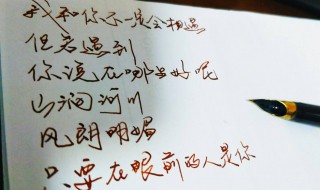 我和你不一定会相遇
但若遇到
你说在哪里好呢
山涧河川
风朗明媚
只要在眼前的人是你